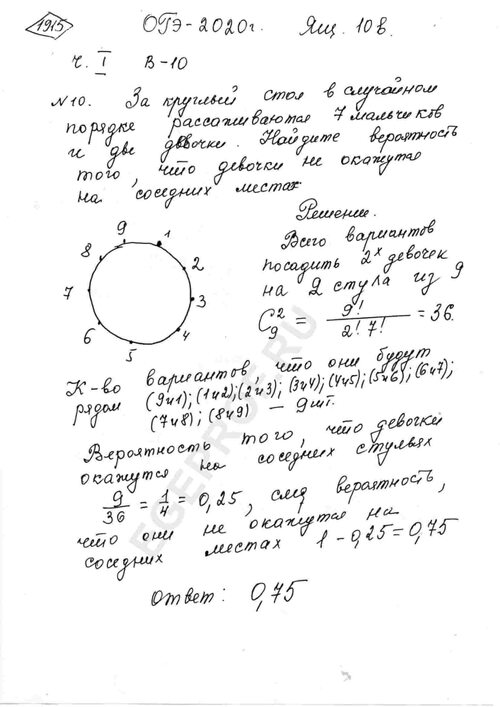 1915
ОГЭ-2020г. Ящ. 10в.
Ч. I В-10
№10. За круглый стол в случайном
порядке рассаживаются 7 мальчиков
и две девочки. Найдите вероятность
того, что девочки не окажутся
на соседних местах
Решение.
Всего вариантов
посадить 2х девочек
на 2 стула из 9
C₉² = 9! / 2! 7! = 36.
9 1
8 2
7 3
6 4
5
К-во вариантов что они будут
рядом (9и1); (1и2); (2и3), (3и4); (4и5); (5и6); (6и7);
(7и8); (8и9) – 9шт.
Вероятность того, что девочки
окажутся на соседних стульях
9/36 = 1/4 = 0,25, след вероятность,
что они не окажутся на
соседних местах 1 – 0,25 = 0,75
Ответ: 0,75
EGEPROF.RU